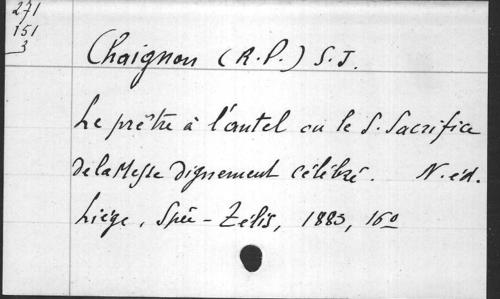 271
151
3
Chaignon (R.P.) S.J.
Le prêtre à l'autel ou le S. Sacrifice
de la Messe dignement célébré. N. éd.
Liège, Spée-Zelis, 1883, 16º